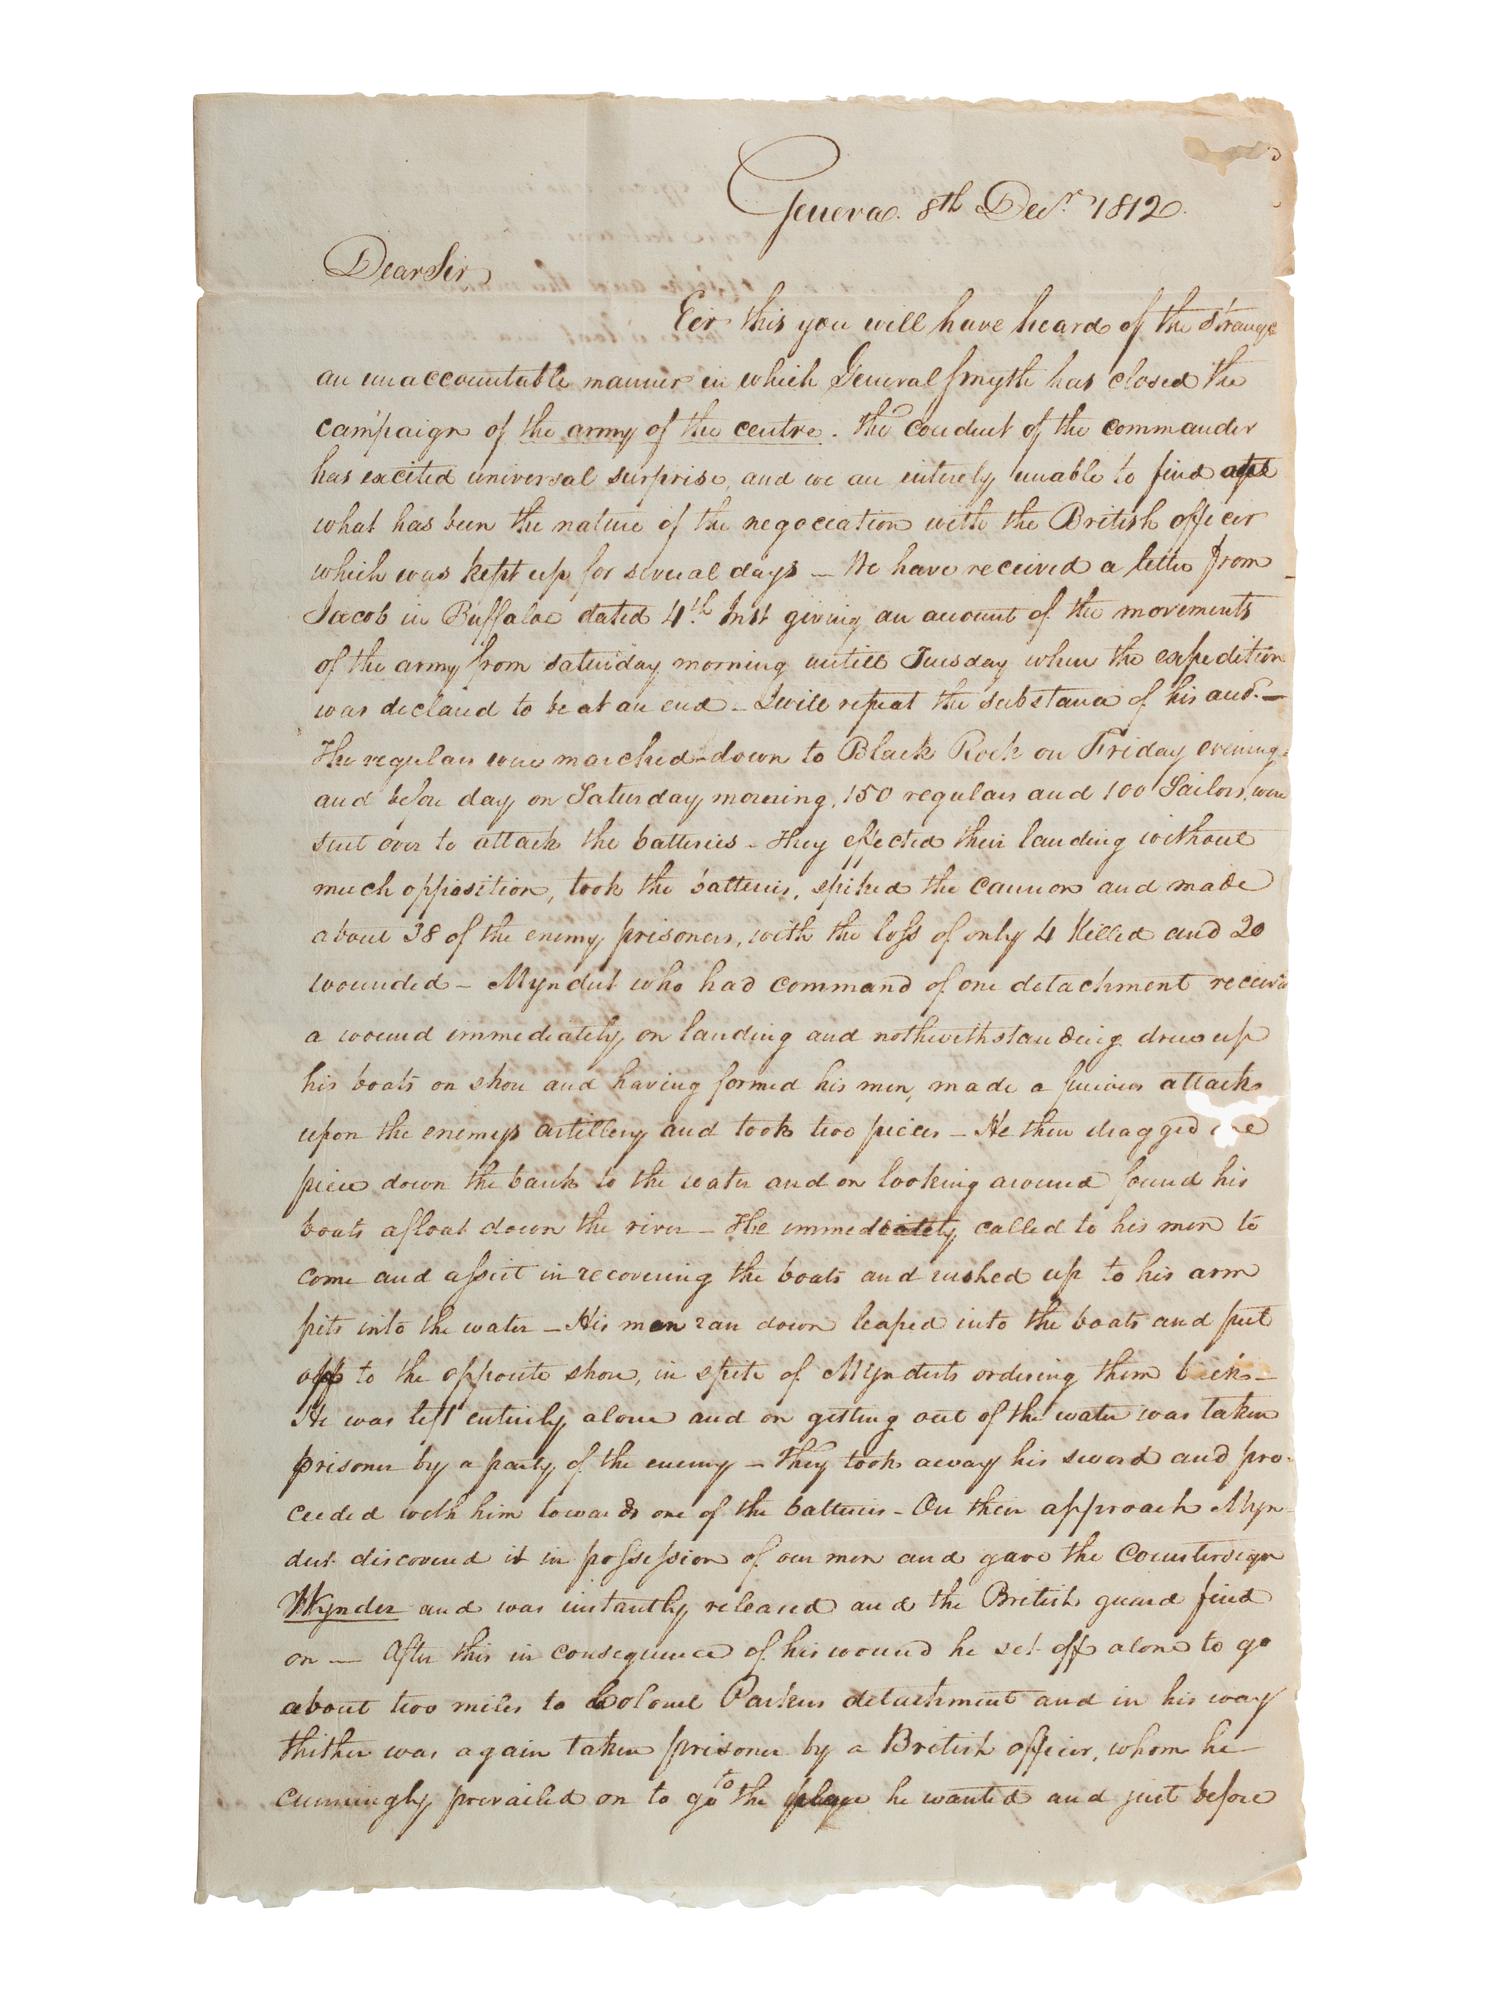 Geneva. 8th Decr. 1812.
Dear Sir
Eer this you will have heard of the strange
an unaccountable manner in which General Smyth has closed the
campaign of the army of the centre. The conduct of the commander
has excited universal surprise, and we are entirely unable to find
what has been the nature of the negociation with the British officer
which was kept up for several days — We have received a letter from
Jacob in Buffaloe dated 4th Inst giving an account of the movements
of the army from saturday morning untill Tuesday when the expedition
was declared to be at an end — I will repeat the substance of his
The regulars were marched down to Black Rock on Friday evening
and before day on Saturday morning, 150 regulars and 100 Sailors were
sent over to attack the batteries — They effected their landing without
much opposition, took the batteries, spiked the cannon and made
about 38 of the enemy prisoners, with the loss of only 4 killed and 20
wounded — Myndert who had command of one detachment received
a wound immediately on landing and nothwithstanding drew up
his boats on shore and having formed his men, made a furious attack
upon the enemys artillery and took two pieces — He then dragged one
piece down the bank to the water and on looking around found his
boats afloat down the river — He immediately called to his men to
come and assist in recovering the boats and rushed up to his arm
pits into the water — His men ran down leaped into the boats and put
off to the opposite shore, in spite of Mynderts ordering them back —
He was left entirely alone and on getting out of the water was taken
prisoner by a party of the enemy — They took away his sword and pro-
ceeded with him towards one of the batteries — On their approach Myn-
dert discovered it in possession of our men and gave the Countersign
Wynder and was instantly released and the British guard fired
on — After this in consequence of his wound he set off alone to go
about two miles to Colonel Parkers detachment and in his way
thither was again taken prisoner by a British officer, whom he
cunningly prevailed on to go to the place he wanted and just before